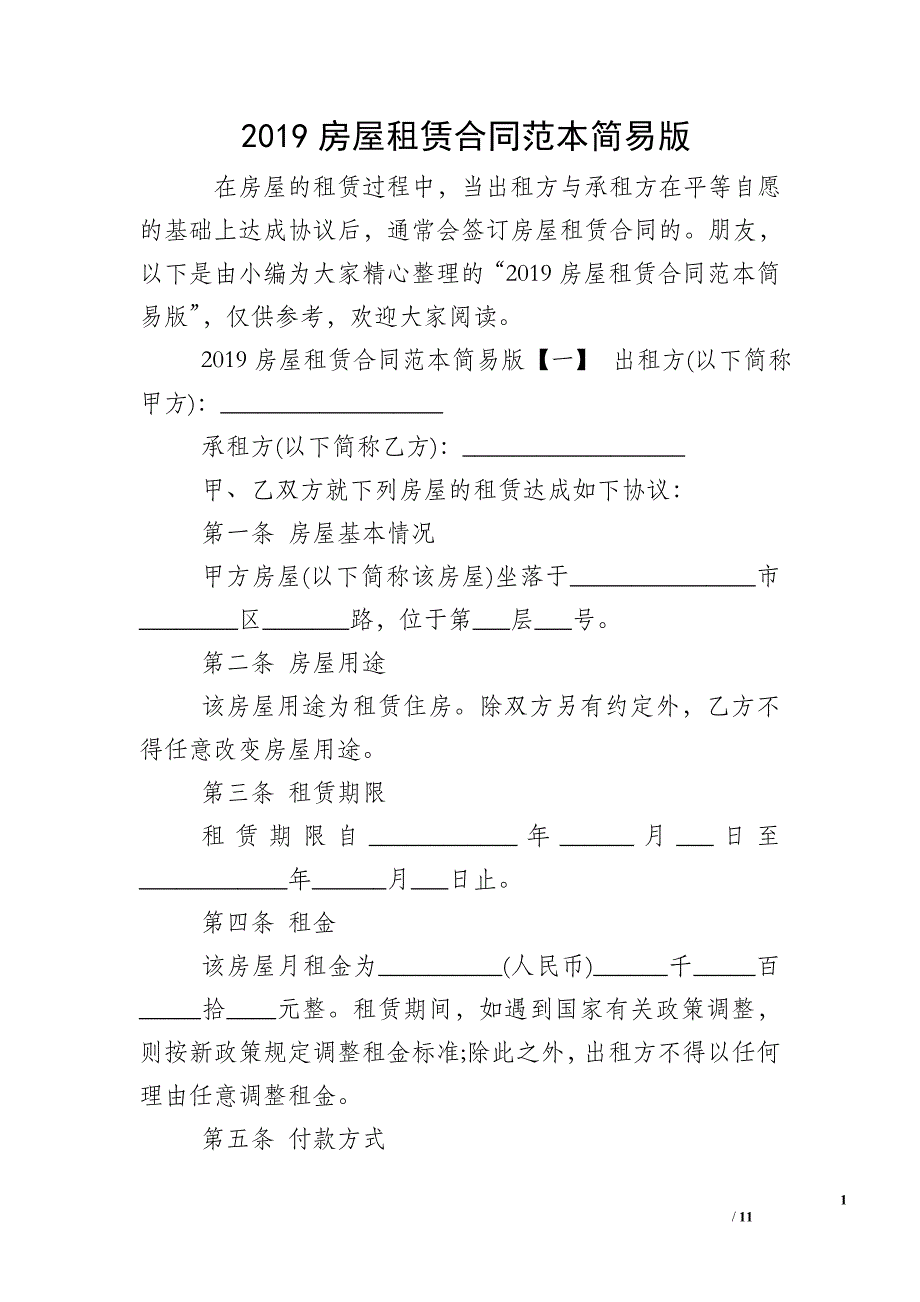 2019 房屋租赁合同范本简易版
在房屋的租赁过程中，当出租方与承租方在平等自愿
的基础上达成协议后，通常会签订房屋租赁合同的。朋友，
以下是由小编为大家精心整理的“2019 房屋租赁合同范本简
易版”，仅供参考，欢迎大家阅读。
2019 房屋租赁合同范本简易版【一】 出租方(以下简称
甲方)：__________________
承租方(以下简称乙方)：__________________
甲、乙双方就下列房屋的租赁达成如下协议：
第一条 房屋基本情况
甲方房屋(以下简称该房屋)坐落于_______________市
________区_______路，位于第___层___号。
第二条 房屋用途
该房屋用途为租赁住房。除双方另有约定外，乙方不
得任意改变房屋用途。
第三条 租赁期限
租赁期限自____________年______月___日至
____________年______月___日止。
第四条 租金
该房屋月租金为__________(人民币)______千_____百
_____拾____元整。租赁期间，如遇到国家有关政策调整，
则按新政策规定调整租金标准;除此之外，出租方不得以任何
理由任意调整租金。
第五条 付款方式
1
/ 11